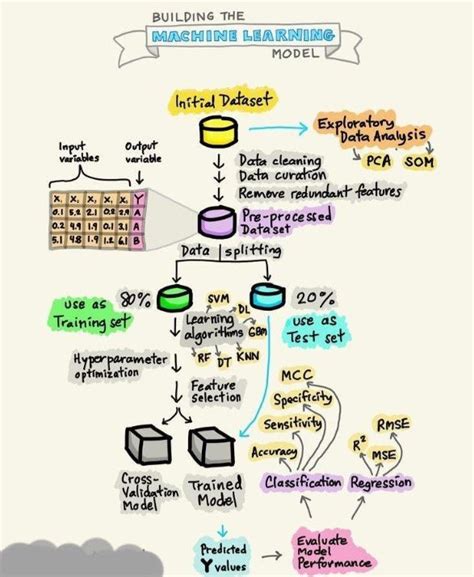 BUILDING THE
MACHINE LEARNING
MODEL
Initial Dataset
Exploratory
Data Analysis
PCA SOM
Input
variables
Output
variable
Data cleaning
Data curation
Remove redundant features
X, X, X, X, X, Y
0.1 5.2 2.1 0.2 2.9 A
0.2 4.9 1.9 0.1 3.1 A
5.1 4.8 1.9 1.2 6.1 B
Pre-processed
Dataset
Data splitting
80%
20%
use as
Training set
use as
Test set
SVM
DL
Learning
algorithms
GBM
RF DT KNN
Hyperparameter
optimization
Feature
selection
MCC
Specificity
Sensitivity
Accuracy
RMSE
R²
MSE
Classification Regression
Cross-
Validation
Model
Trained
Model
Predicted
Y values
Evaluate
Model
Performance